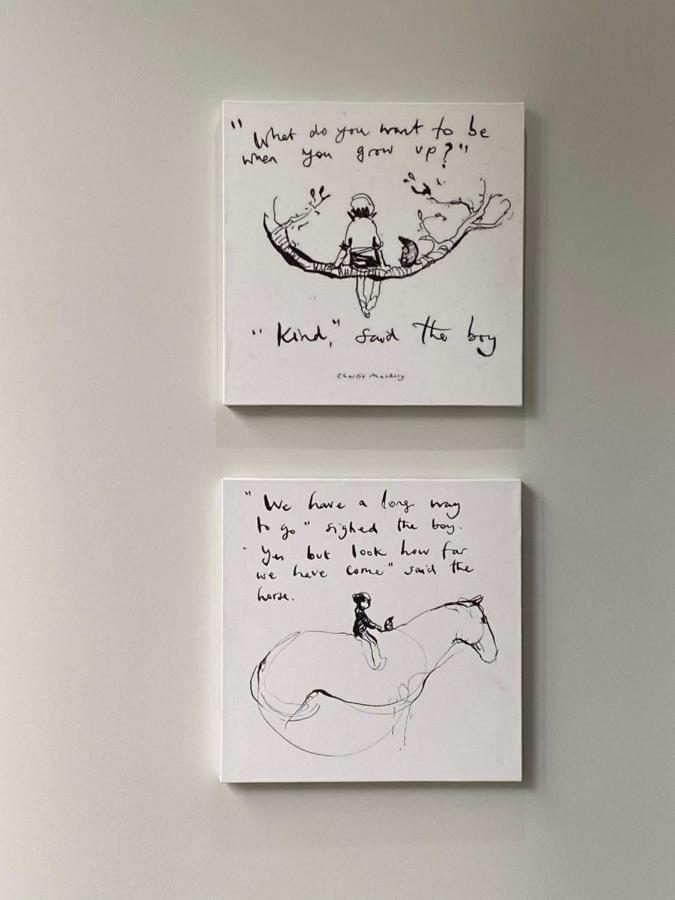 "What do you want to be
when you grow up?"
"Kind," said the boy
Charlie Mackesy
"We have a long way
to go" sighed the boy.
"Yes but look how far
we have come" said the
horse.